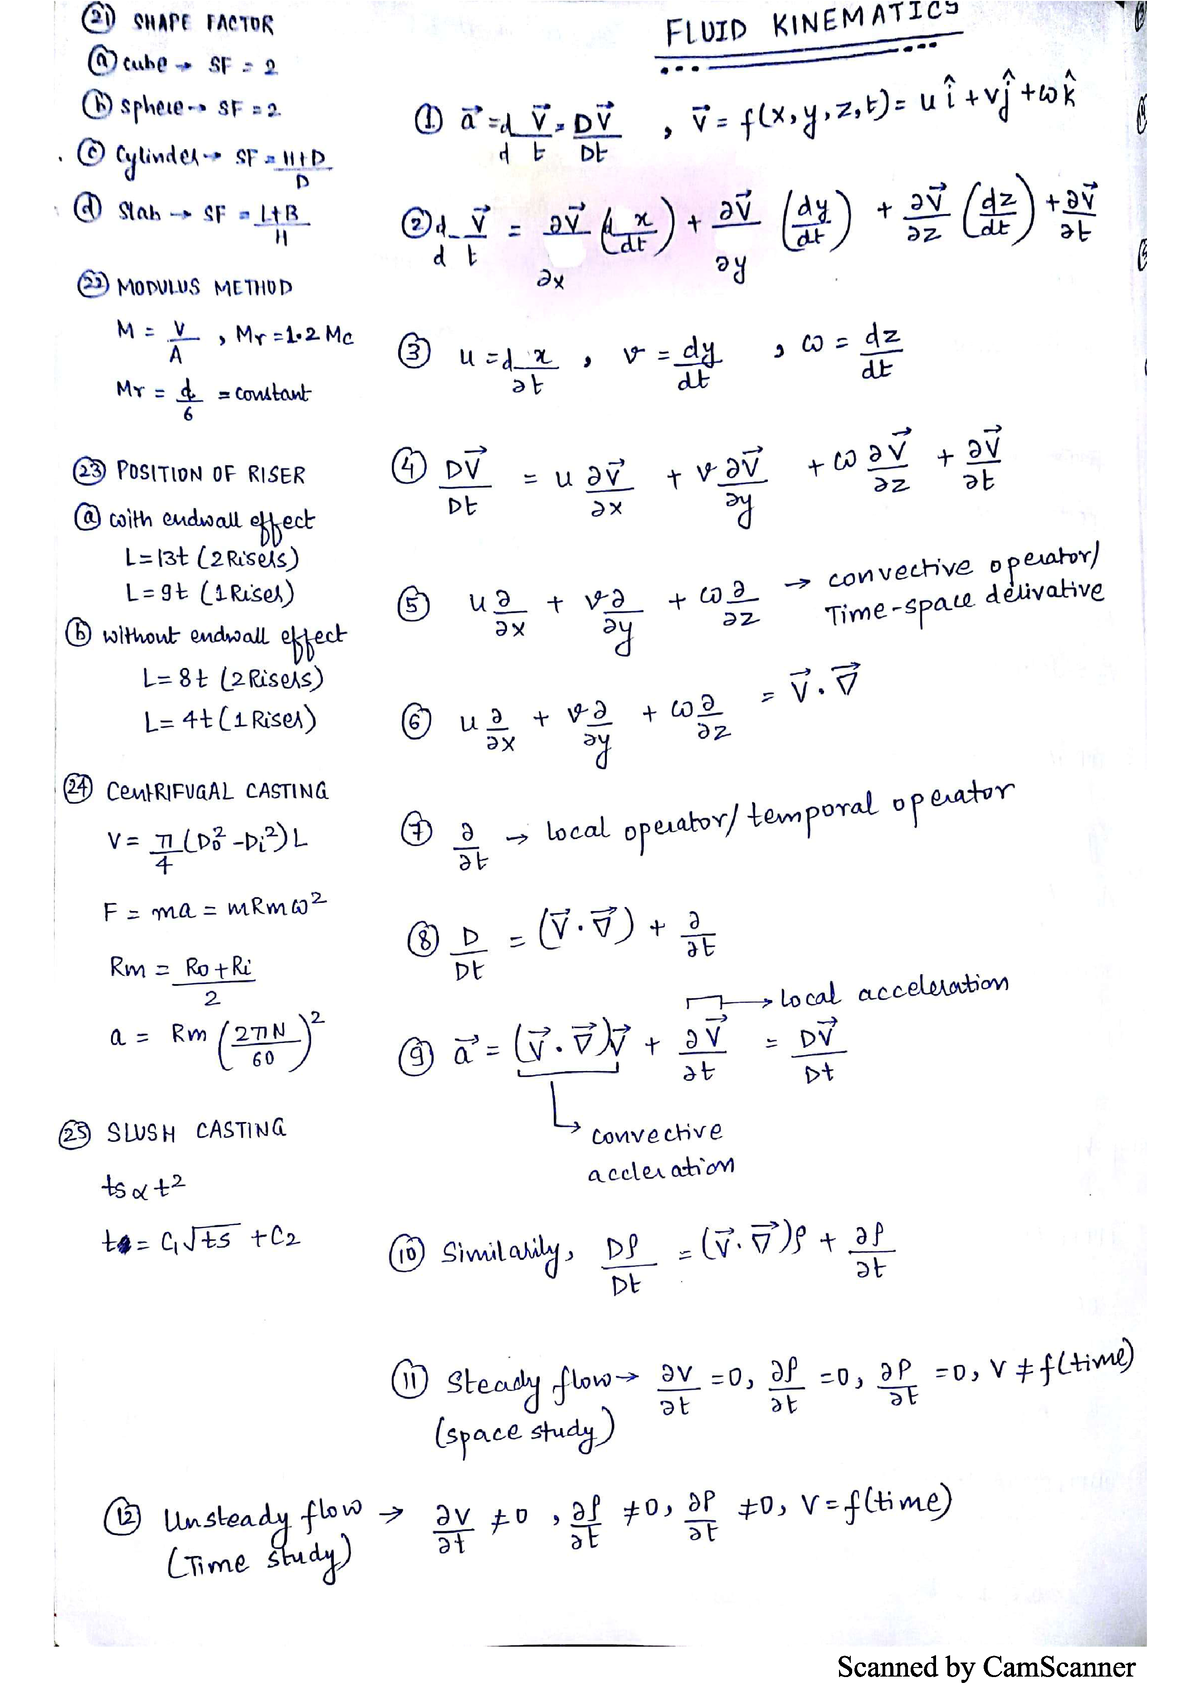 (21) SHAPE FACTOR
(a) cube → SF = 2
(b) sphere → SF = 2
(c) Cylinder → SF = H+D / D
(d) Slab → SF = L+B / H
(22) MODULUS METHOD
M = V/A , Mr = 1.2 Mc
Mr = d/6 = constant
(23) POSITION OF RISER
(a) with endwall effect
L = 13t (2 Risers)
L = 9t (1 Riser)
(b) without endwall effect
L = 8t (2 Risers)
L = 4t (1 Riser)
(24) CENTRIFUGAL CASTING
V = π/4 (Do² - Di²) L
F = ma = mRmω²
Rm = Ro + Ri / 2
a = Rm (2πN/60)²
(25) SLUSH CASTING
ts ∝ t²
t = C₁√ts + C₂
FLUID KINEMATICS
(1) a⃗ = d V⃗ / d t = DV⃗/Dt , V⃗ = f(x, y, z, t) = u î + v ĵ + ω k̂
(2) d V⃗ / d t = ∂V⃗/∂x (d x/dt) + ∂V⃗/∂y (dy/dt) + ∂V⃗/∂z (dz/dt) + ∂V⃗/∂t
(3) u = d x/∂t , v = dy/dt , ω = dz/dt
(4) DV⃗/Dt = u ∂V⃗/∂x + v ∂V⃗/∂y + ω ∂V⃗/∂z + ∂V⃗/∂t
(5) u ∂/∂x + v ∂/∂y + ω ∂/∂z → convective operator/
Time-space derivative
(6) u ∂/∂x + v ∂/∂y + ω ∂/∂z = V⃗ . ∇⃗
(7) ∂/∂t → local operator/ temporal operator
(8) D/Dt = (V⃗ . ∇⃗) + ∂/∂t
→ local acceleration
(9) a⃗ = (V⃗ . ∇⃗)V⃗ + ∂V⃗/∂t = DV⃗/Dt
→ convective
accleration
(10) Similarily, Dρ/Dt = (V⃗ . ∇⃗)ρ + ∂ρ/∂t
(11) Steady flow → ∂V/∂t = 0, ∂ρ/∂t = 0, ∂P/∂t = 0, V ≠ f(time)
(space study)
(12) Unsteady flow → ∂V/∂t ≠ 0 , ∂ρ/∂t ≠ 0, ∂P/∂t ≠ 0, V = f(time)
(Time study)
Scanned by CamScanner